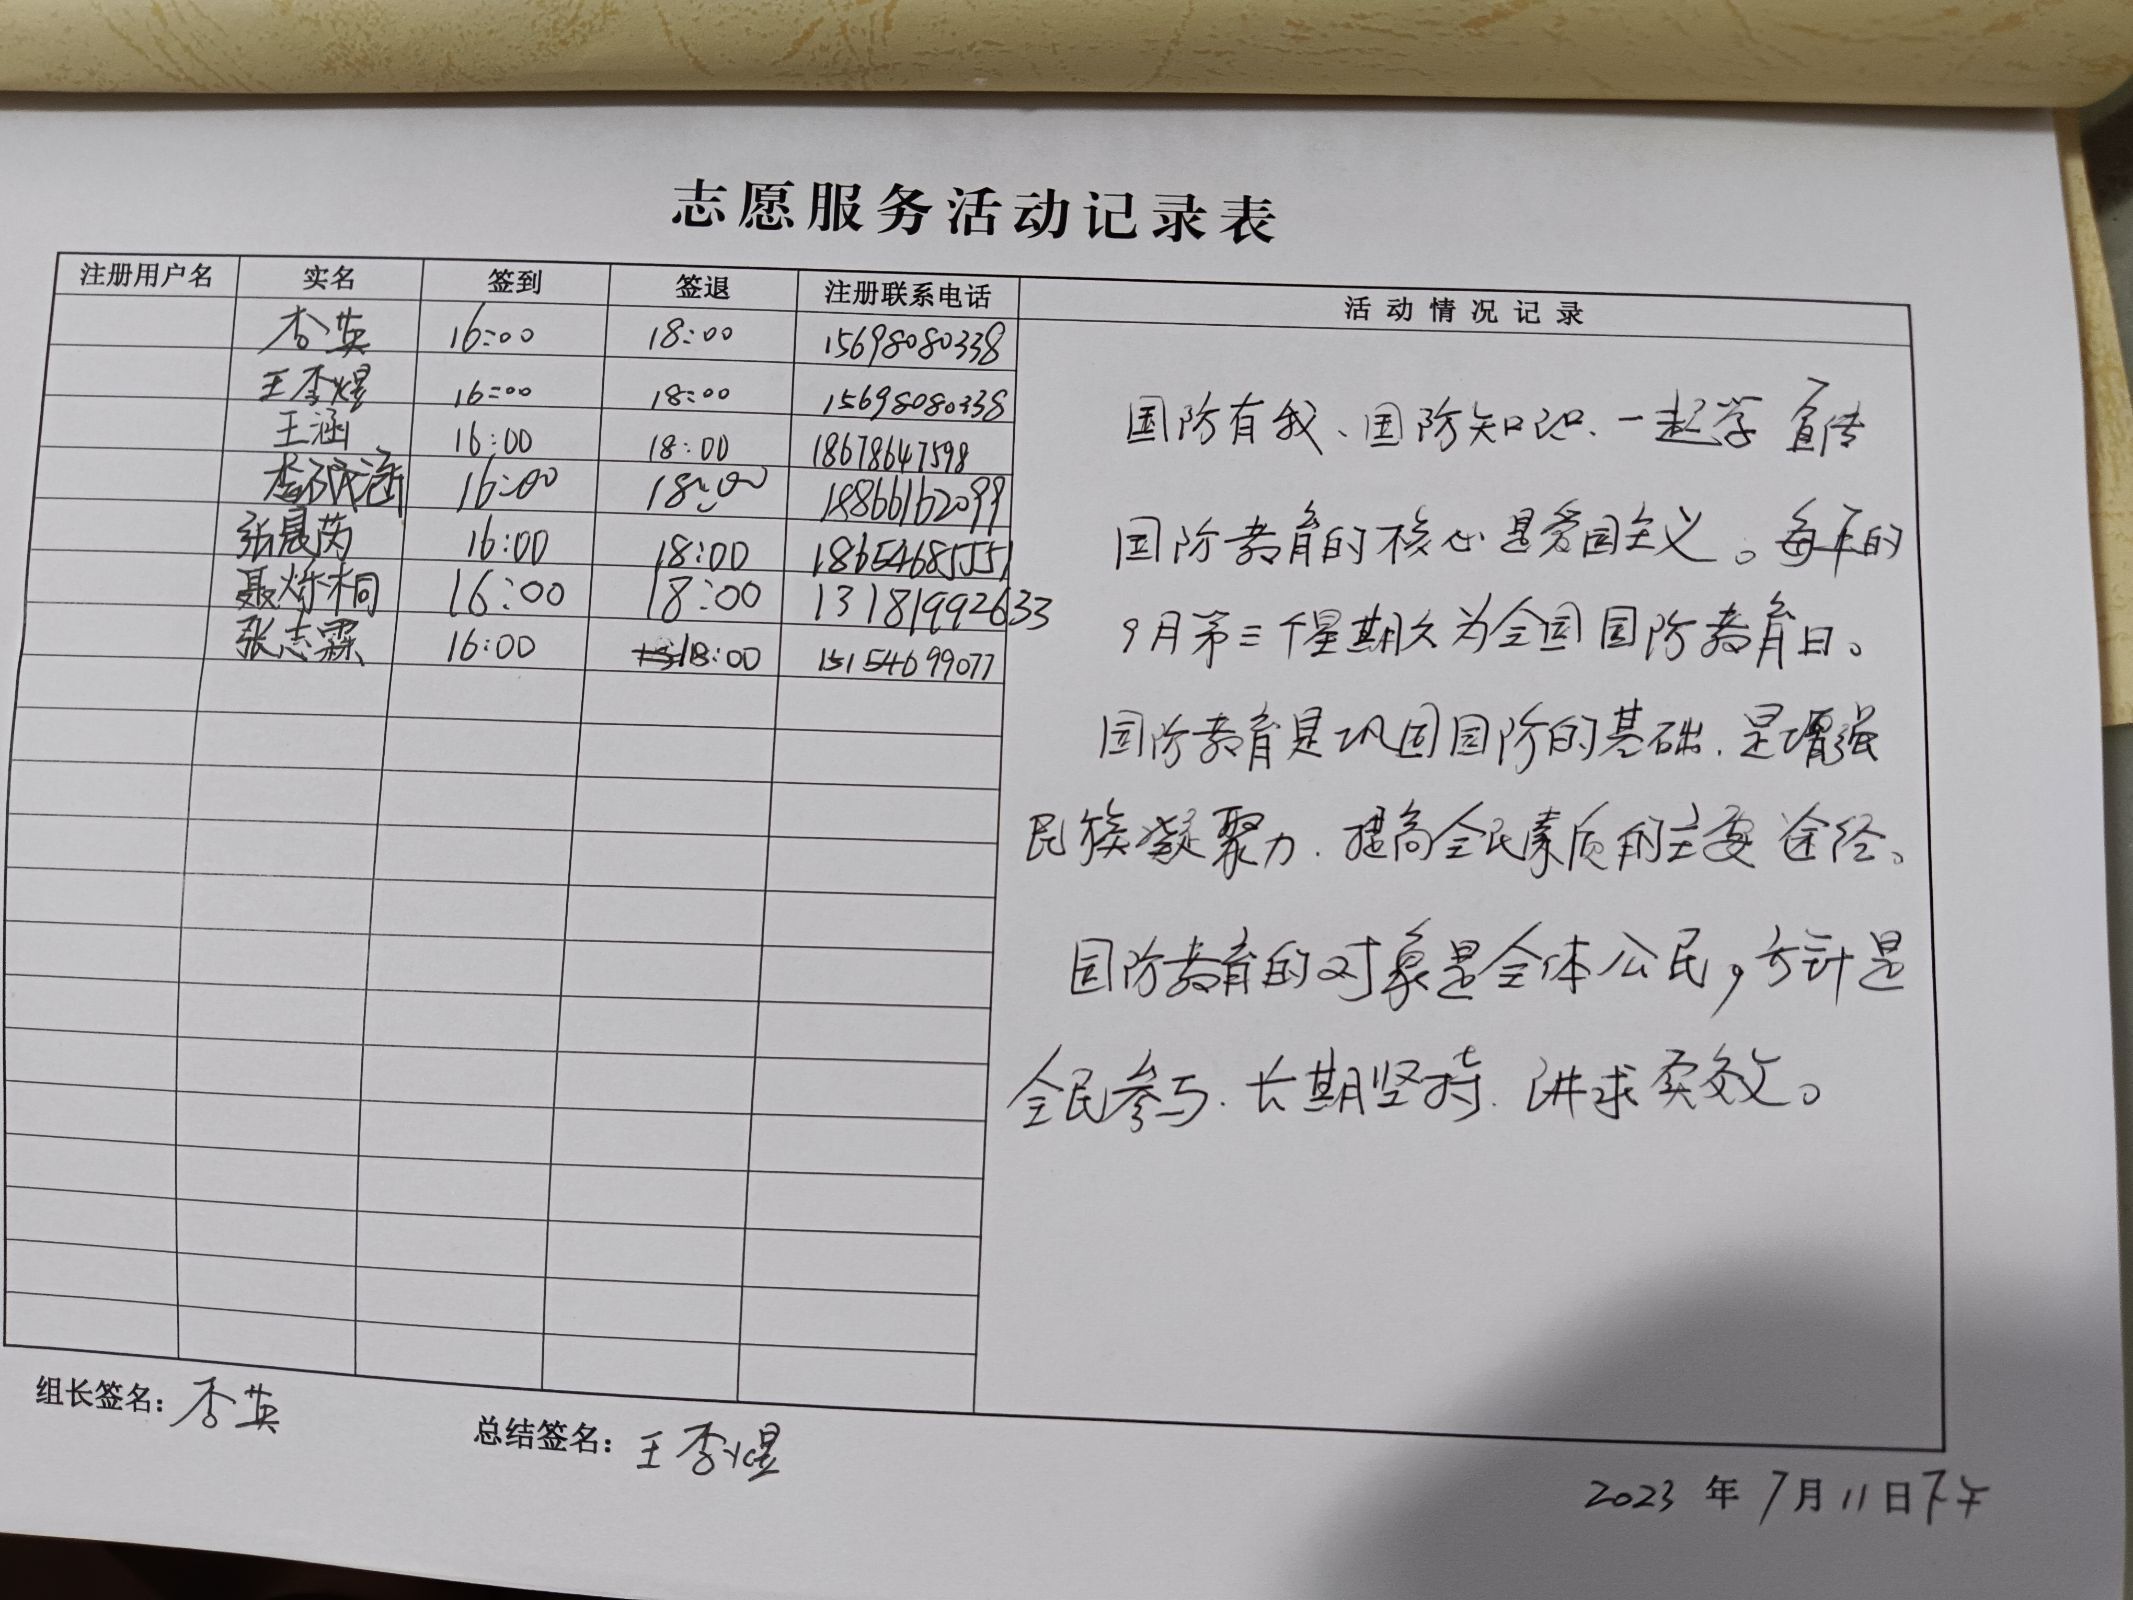 志愿服务活动记录表
注册用户名 实名 签到 签退 注册联系电话 活动情况记录
李英 16:00 18:00 15698080338
王李煜 16:00 18:00 15698080338
王涵 16:00 18:00 18678647598
16:00 18:00 18866162099
张晨芮 16:00 18:00 18654685551
聂烁桐 16:00 18:00 13181992633
张志霖 16:00 18:00 15154699077
国防有我、国防知识、一起学 宣传
国防教育的核心是爱国主义。每年的
9月第三个星期六为全国国防教育日。
国防教育是巩固国防的基础、是增强
民族凝聚力、提高全民素质的主要途径。
国防教育的对象是全体公民,方针是
全民参与、长期坚持、讲求实效。
组长签名:李英 总结签名:王李煜
2023年7月11日下午